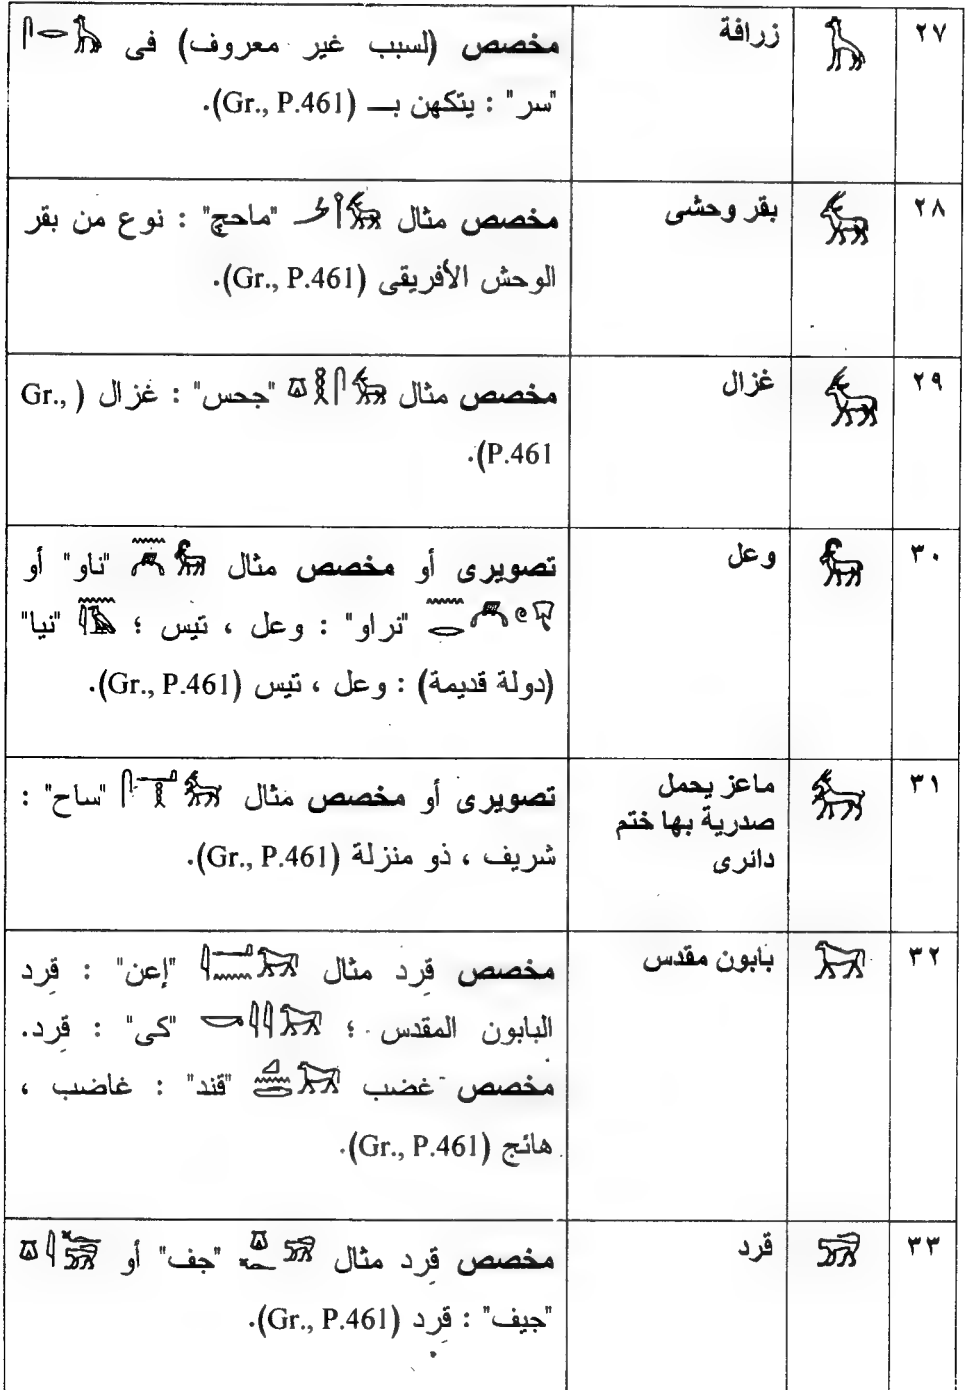 ٢٧ 𓃱 زرافة مخصص (لسبب غير معروف) فى 𓋴𓂋𓃱
"سر" : يتكهن بـ (Gr., P.461).
٢٨ بقر وحشى مخصص مثال "ماحچ" : نوع من بقر
الوحش الأفريقى (Gr., P.461).
٢٩ غزال مخصص مثال "جحس" : غزال (Gr.,
P.461).
٣٠ وعل تصويرى أو مخصص مثال "ناو" أو
"نراو" : وعل ، تيس ؛ "نيا"
(دولة قديمة) : وعل ، تيس (Gr., P.461).
٣١ ماعز يحمل
صدرية بها ختم
دائرى
تصويرى أو مخصص مثال "ساح" :
شريف ، ذو منزلة (Gr., P.461).
٣٢ بابون مقدس مخصص قِرد مثال "إعن" : قِرد
البابون المقدس ؛ "كى" : قِرد.
مخصص غضب "قند" : غاضب ،
هائج (Gr., P.461).
٣٣ قرد مخصص قِرد مثال "جف" أو
"جيف" : قِرد (Gr., P.461).